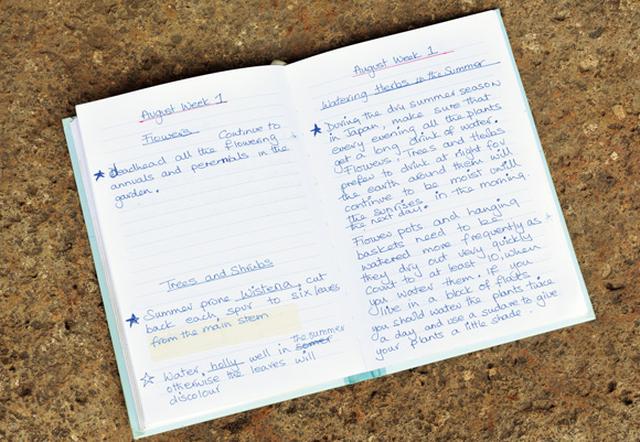 August Week 1
Flowers Continue to
deadhead all the flowering
annuals and perennials in the
garden.
Trees and Shrubs
Summer prune wisteria, cut
back each, spur to six leaves
from the main stem
Water, holly well in the summer
otherwise the leaves will
discolour
August Week 1
Watering Herbs in the Summer
During the dry summer season
in Japan, make sure that
every evening all the plants
get a long drink of water.
Flowers, Trees and Herbs
prefer to drink at night for
the earth around them will
continue to be moist until
the sunrises in the morning.
the next day.
Flower pots and hanging
baskets need to be
watered more frequently as
they dry out very quickly
count to at least 10, when
you water them. If you
live in a block of flats
you should water the plants twice
a day and use a sudare to give
your plants a little shade.